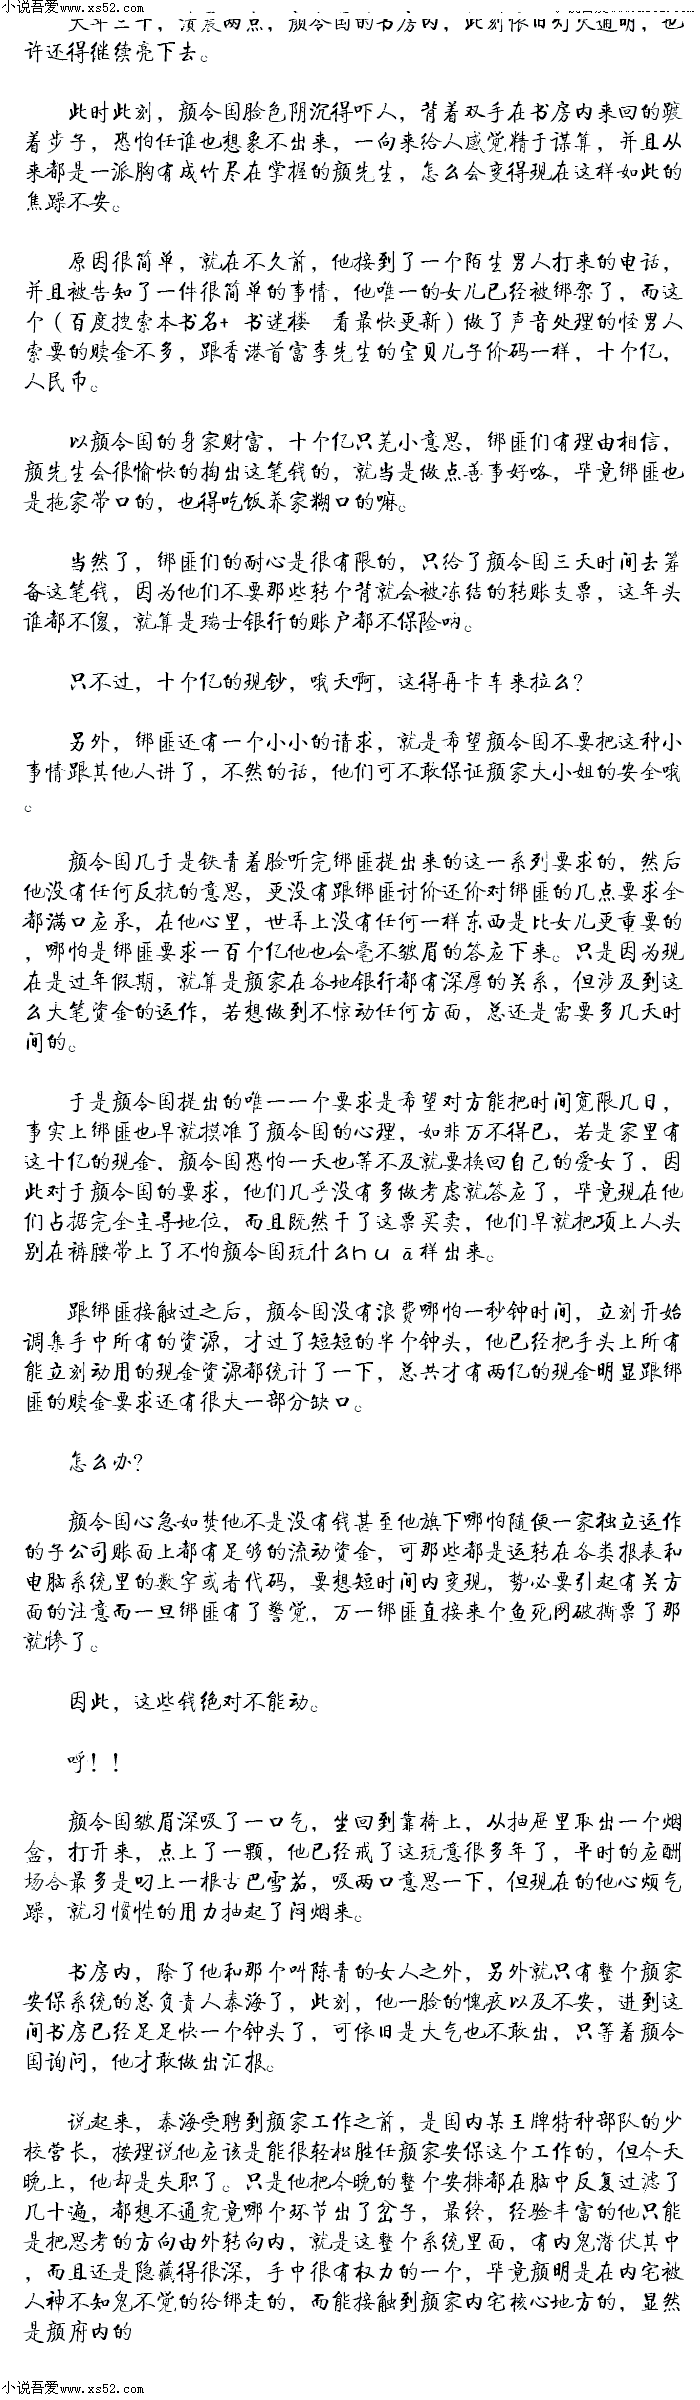 小说吾爱www.xs52.com
大年三十，凌晨两点，颜令国的书房内，此刻依旧灯火通明，也
许还得继续亮下去。
此时此刻，颜令国脸色阴沉得吓人，背着双手在书房内来回的踱
着步子，恐怕任谁也想象不出来，一向来给人感觉精于谋算，并且从
来都是一派胸有成竹尽在掌握的颜先生，怎么会变得现在这样如此的
焦躁不安。
原因很简单，就在不久前，他接到了一个陌生男人打来的电话，
并且被告知了一件很简单的事情，他唯一的女儿已经被绑架了，而这
个（百度搜索本书名+ 书迷楼 看最快更新）做了声音处理的怪男人
索要的赎金不多，跟香港首富李先生的宝贝儿子价码一样，十个亿，
人民币。
以颜令国的身家财富，十个亿只芜小意思，绑匪们有理由相信，
颜先生会很愉快的掏出这笔钱的，就当是做点善事好咯，毕竟绑匪也
是拖家带口的，也得吃饭养家糊口的嘛。
当然了，绑匪们的耐心是很有限的，只给了颜令国三天时间去筹
备这笔钱，因为他们不要那些转个背就会被冻结的转账支票，这年头
谁都不傻，就算是瑞士银行的账户都不保险呐。
只不过，十个亿的现钞，哦天啊，这得再卡车来拉么？
另外，绑匪还有一个小小的请求，就是希望颜令国不要把这种小
事情跟其他人讲了，不然的话，他们可不敢保证颜家大小姐的安全哦
。
颜令国几于是铁青着脸听完绑匪提出来的这一系列要求的，然后
他没有任何反抗的意思，更没有跟绑匪讨价还价对绑匪的几点要求全
都满口应承，在他心里，世弄上没有任何一样东西是比女儿更重要的
，哪怕是绑匪要求一百个亿他也会毫不皱眉的答应下来。只是因为现
在是过年假期，就算是颜家在各地银行都有深厚的关系，但涉及到这
么大笔资金的运作，若想做到不惊动任何方面，总还是需要多几天时
间的。
于是颜令国提出的唯一一个要求是希望对方能把时间宽限几日，
事实上绑匪也早就摸准了颜令国的心理，如非万不得已，若是家里有
这十亿的现金，颜令国恐怕一天也等不及就要换回自己的爱女了，因
此对于颜令国的要求，他们几乎没有多做考虑就答应了，毕竟现在他
们占据完全主导地位，而且既然干了这票买卖，他们早就把项上人头
别在裤腰带上了不怕颜令国玩什么huā样出来。
跟绑匪接触过之后，颜令国没有浪费哪怕一秒钟时间，立刻开始
调集手中所有的资源，才过了短短的半个钟头，他已经把手头上所有
能立刻动用的现金资源都统计了一下，总共才有两亿的现金明显跟绑
匪的赎金要求还有很大一部分缺口。
怎么办？
颜令国心急如焚他不是没有钱甚至他旗下哪怕随便一家独立运作
的子公司账面上都有足够的流动资金，可那些都是运转在各类报表和
电脑系统里的数字或者代码，要想短时间内变现，势必要引起有关方
面的注意而一旦绑匪有了警觉，万一绑匪直接来个鱼死网破撕票了那
就惨了。
因此，这些钱绝对不能动。
呼！！
颜令国皱眉深吸了一口气，坐回到靠椅上，从抽屉里取出一个烟
盒，打开来，点上了一颗，他已经戒了这玩意很多年了，平时的应酬
场合最多是叼上一根古巴雪茄，吸两口意思一下，但现在的他心烦气
躁，就习惯性的用力抽起了闷烟来。
书房内，除了他和那个叫陈青的女人之外，另外就只有整个颜家
安保系统的总负责人秦海了，此刻，他一脸的愧疚以及不安，进到这
间书房已经足足快一个钟头了，可依旧是大气也不敢出，只等着颜令
国询问，他才敢做出汇报。
说起来，秦海受聘到颜家工作之前，是国内某王牌特种部队的少
校营长，按理说他应该是能很轻松胜任颜家安保这个工作的，但今天
晚上，他却是失职了。只是他把今晚的整个安排都在脑中反复过滤了
几十遍，都想不通究竟哪个环节出了岔子，最终，经验丰富的他只能
是把思考的方向由外转向内，就是这整个系统里面，有内鬼潜伏其中
，而且还是隐藏得很深，手中很有权力的一个，毕竟颜明是在内宅被
人神不知鬼不觉的给绑走的，而能接触到颜家内宅核心地方的，显然
是颜府内的
小说吾爱www.xs52.com